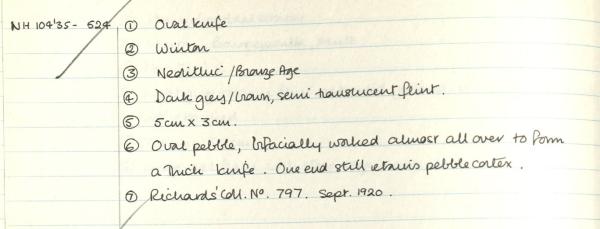 NH 104'35 - 524 ① Oval knife
② Winton
③ Neolithic / Bronze Age
④ Dark grey/brown, semi translucent flint.
⑤ 5cm x 3cm.
⑥ Oval pebble, bifacially worked almost all over to form
a thick knife. One end still retains pebble cortex.
⑦ Richards' Coll. No. 797. Sept. 1920.